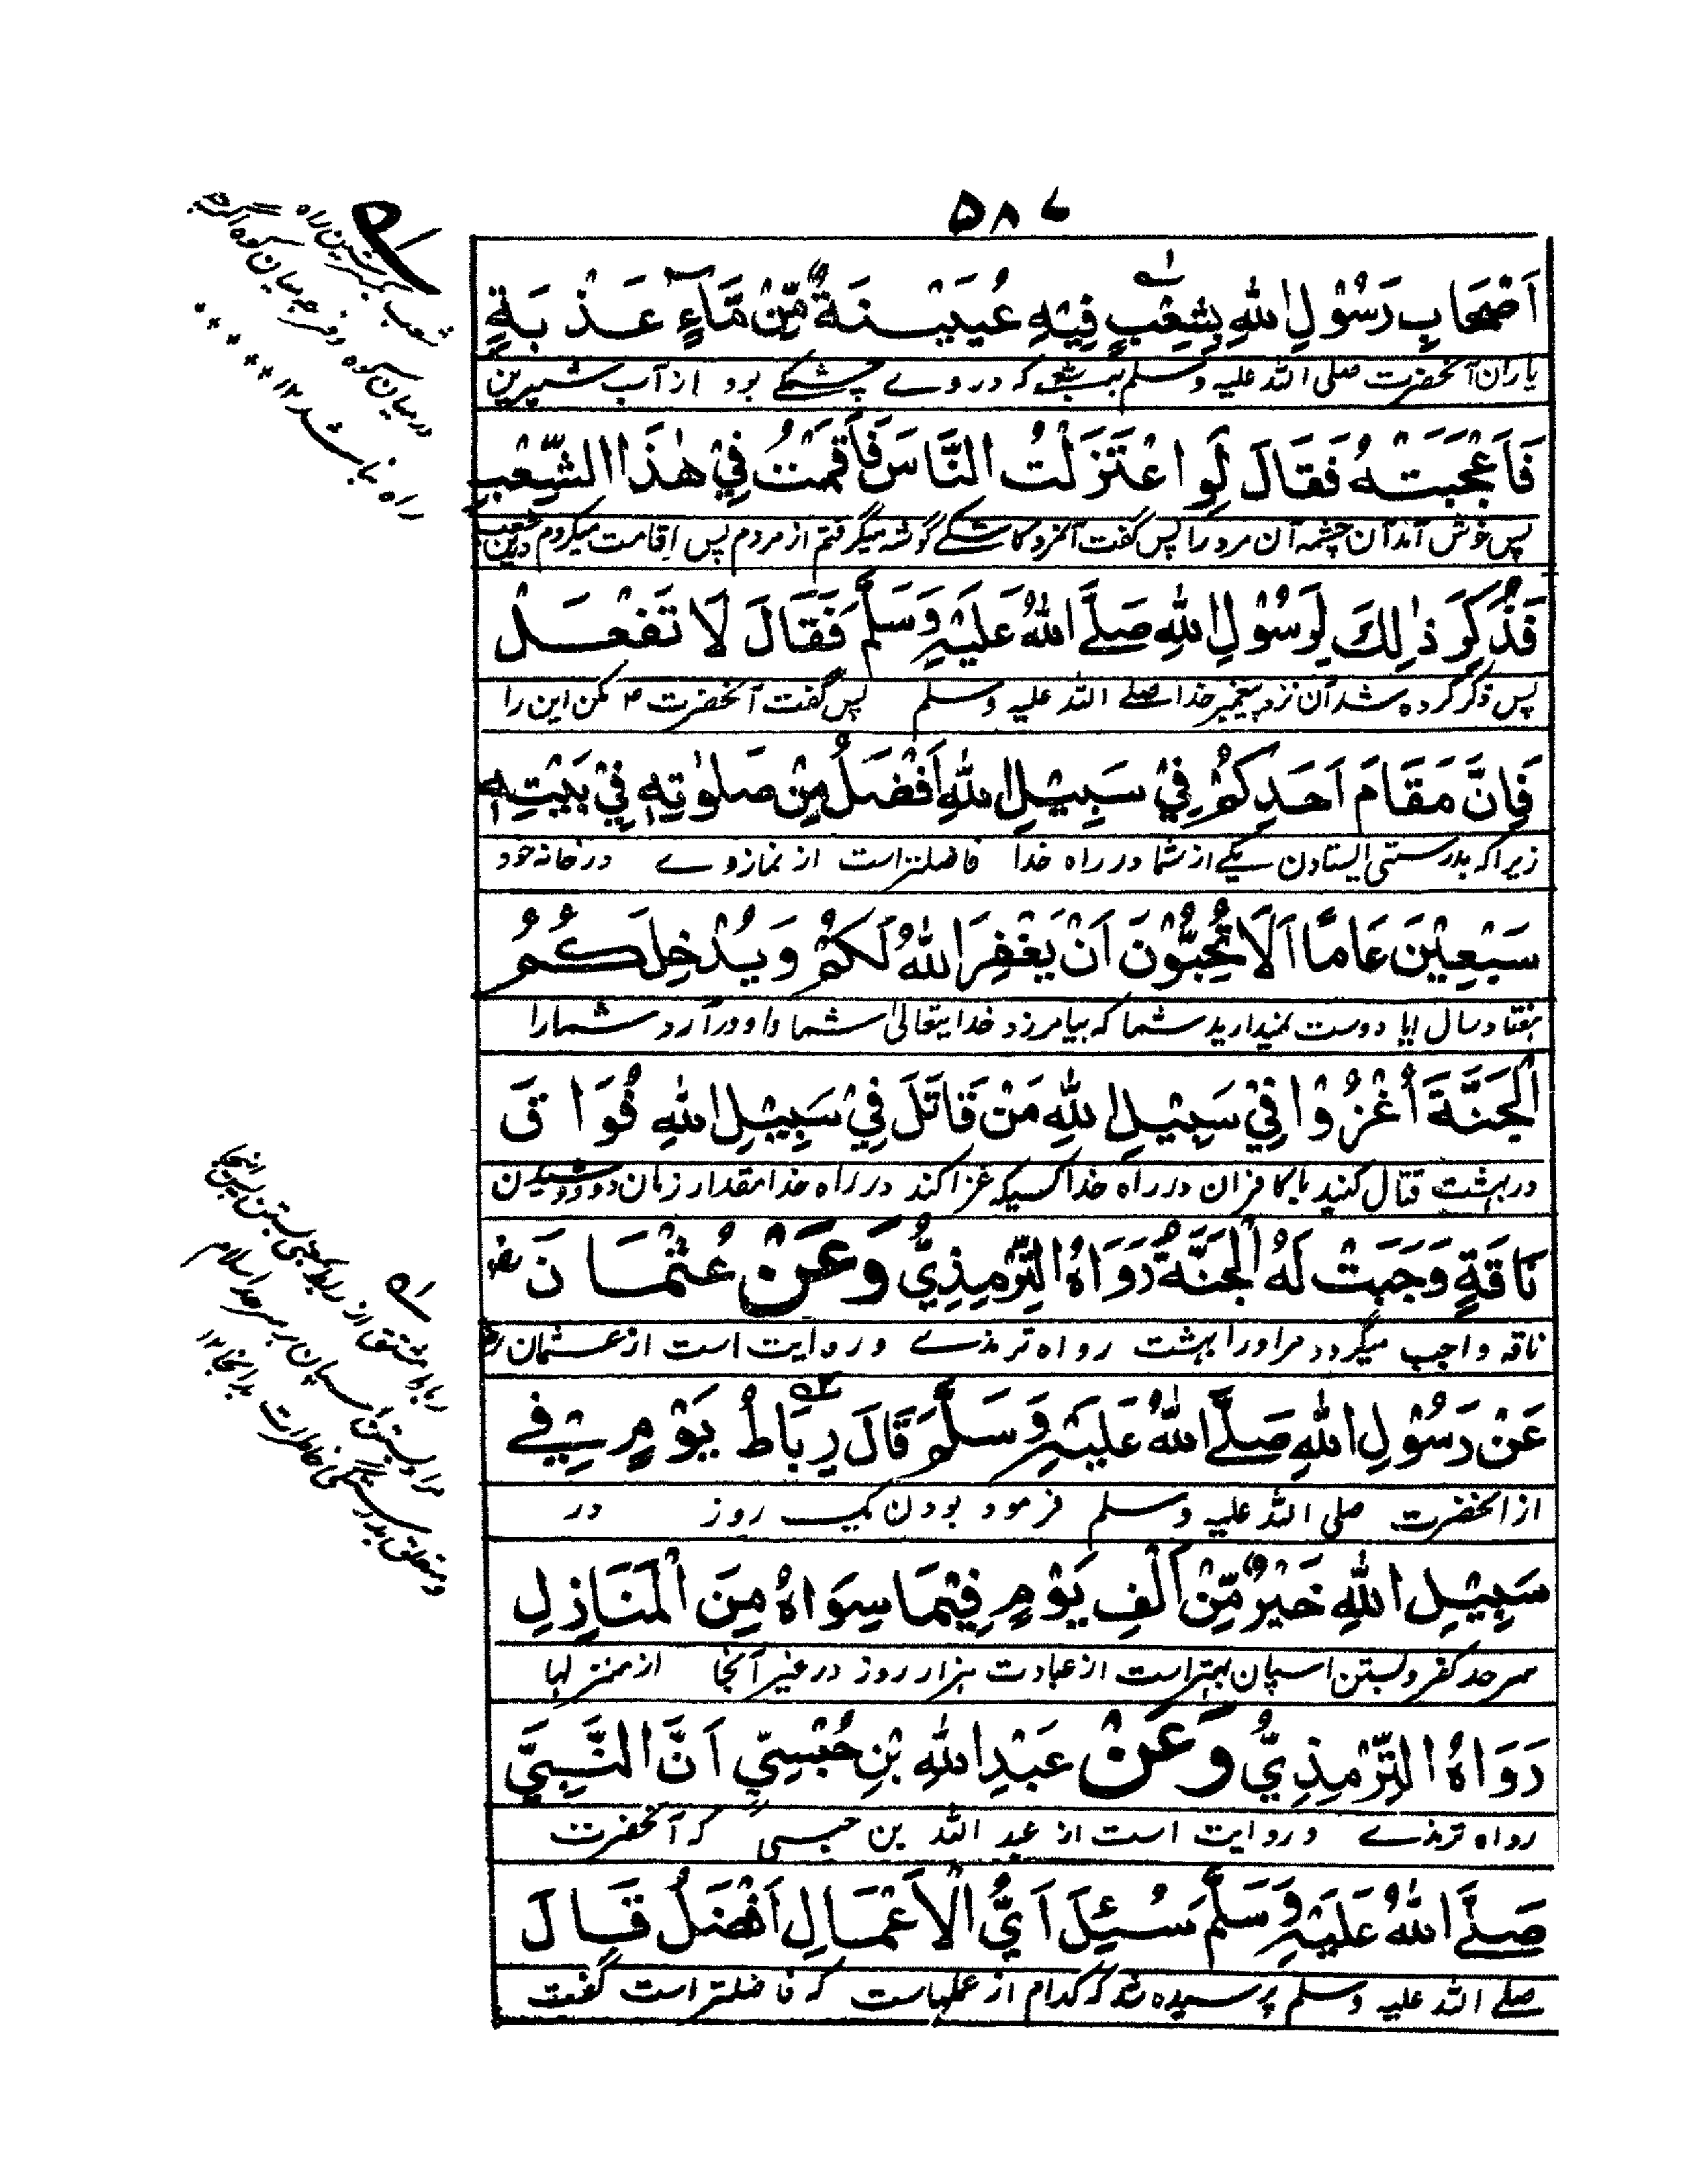 ۵۸۷
اَصْحَابِ رَسُوْلِ اللهِ بِشِعْبٍ فِيْهِ عُيَيْنَةٌ مِّنْ مَّاءٍ عَذْبَةٍ
یاران آنحضرت صلی الله علیه وسلم بشعبے که در وے چشمکے بود از آب شیرین
فَاَعْجَبَتْهُ فَقَالَ لَوِ اعْتَزَلْتُ النَّاسَ فَاَقَمْتُ فِيْ هٰذَا الشِّعْبِ
پس خوش آمد آن چشمه آن مرد را پس گفت آنمرد کاشکے گوشه میگرفتم از مردم پس اقامت میکردم درین شعب
فَذُكِرَ ذٰلِكَ لِرَسُوْلِ اللهِ صَلَّے اللهُ عَلَيْهِ وَسَلَّمَ فَقَالَ لَا تَفْعَلْ
پس ذکر کرده شد آن نزد پیغمبر خدا صلے الله علیه وسلم پس گفت آنحضرت ۴ مکن این را
فَاِنَّ مَقَامَ اَحَدِكُمْ فِيْ سَبِيْلِ اللهِ اَفْضَلُ مِنْ صَلٰوتِهٖ فِيْ بَيْتِهٖ
زیراکه بدرستی ایستادن یکے از شما در راه خدا فاضلتر است از نماز وے در خانه خود
سَبْعِيْنَ عَامًا اَلَا تُحِبُّوْنَ اَنْ يَغْفِرَ اللهُ لَكُمْ وَيُدْخِلَكُمُ
هفتاد سال ایا دوست نمیدارید شما که بیامرزد خدایتعالیٰ شما را و درآرد شمارا
الْجَنَّةَ اُغْزُوْا فِيْ سَبِيْلِ اللهِ مَنْ قَاتَلَ فِيْ سَبِيْلِ اللهِ فُوَاقَ
در بهشت قتال کنید با کافران در راه خدا کسیکه غزا کند در راه خدا مقدار زمان دو دوشیدن
نَاقَةٍ وَجَبَتْ لَهُ الْجَنَّةُ رَوَاهُ التِّرْمِذِيُّ وَعَنْ عُثْمَانَ رض
ناقه واجب میگردد مر اورا بهشت رواه ترمذے و روایت است از عثمان رض
عَنْ رَسُوْلِ اللهِ صَلَّے اللهُ عَلَيْهِ وَسَلَّمَ قَالَ رِبَاطُ يَوْمٍ فِے
از آنحضرت صلی الله علیه وسلم فرمود بودن یک روز در
سَبِيْلِ اللهِ خَيْرٌ مِّنْ اَلْفِ يَوْمٍ فِيْمَا سِوَاهُ مِنَ الْمَنَازِلِ
سرحد کفر و بستن اسپان بهتر است از عبادت هزار روز در غیر آنجا از منزلها
رَوَاهُ التِّرْمِذِيُّ وَعَنْ عَبْدِ اللهِ بْنِ حُبْشِيٍّ اَنَّ النَّبِيَّ
رواه ترمذے و روایت است از عبد الله بن حبشی که آنحضرت
صَلَّے اللهُ عَلَيْهِ وَسَلَّمَ سُئِلَ اَيُّ الْاَعْمَالِ اَفْضَلُ قَالَ
صلے الله علیه وسلم پرسیده شد که کدام از عملهاست که فاضلتر است گفت
شعب بکسر شین راه
در میان کوه
راه باشد ۱۲
رباط مشتق از ربط یعنی بستن